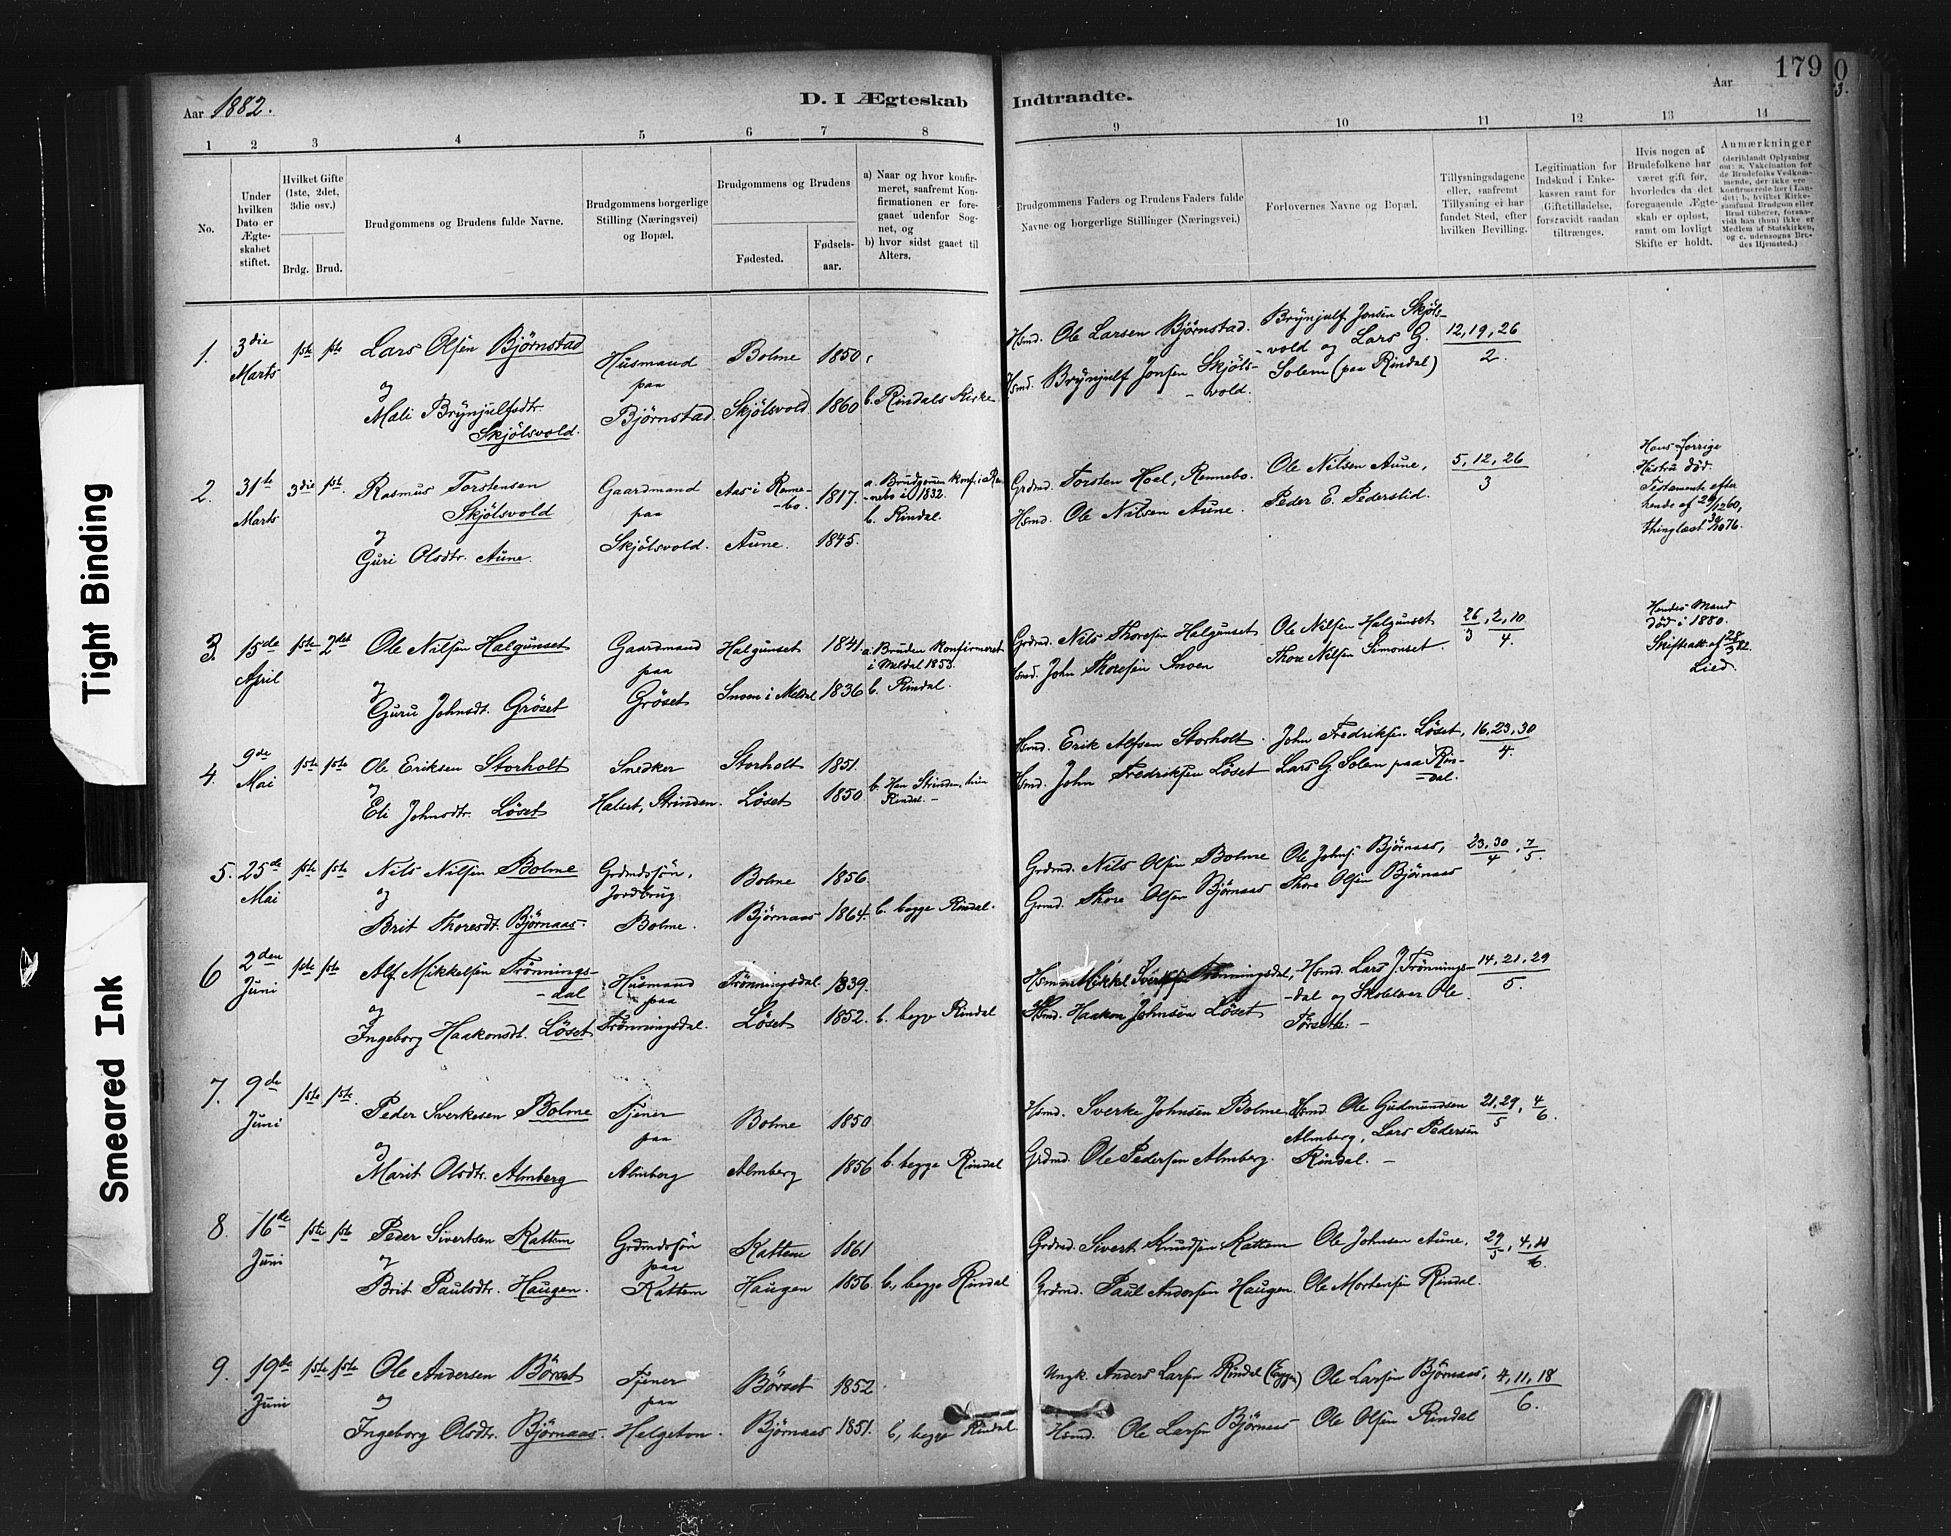 Tight Binding
Smeared Ink
179
Aar 1882.
D. I Ægteskab Indtraadte.
Aar
1 2 3 4 5 6 7 8 9 10 11 12 13 14
No.
Under hvilken Dato er Ægteskabet stiftet.
Hvilket Gifte (1ste, 2det, 3die osv.)
Brdg. Brud.
Brudgommens og Brudens fulde Navne.
Brudgommens borgerlige Stilling (Næringsvei) og Bopæl.
Brudgommens og Brudens
Fødested.
Fødsels-aar.
a) Naar og hvor konfirmeret, saafremt Konfirmationen er foregaaet udenfor Sognet, og
b) hvor sidst gaaet til Alters.
Brudgommens Faders og Brudens Faders fulde Navne og borgerlige Stillinger (Næringsvei).
Forlovernes Navne og Bopæl.
Tillysningsdagene eller, saafremt Tillysning ei har fundet Sted, efter hvilken Bevilling.
Legitimation for Indskud i Enkekassen samt for Giftetilladelse, forsravidt saadan tiltrænges.
Hvis nogen af Brudefolkene har været gift før, hvorledes da det foregaaende Ægteskab er opløst, samt om lovligt Skifte er holdt.
Anmærkninger
(deriblandt Oplysning om: a. Vakcination for de Brudefolks Vedkommende, der ikke ere konfirmerede her i Landet; b. hvilket Kirkesamfund Brudgom eller Brud tilhører, forsaavidt han (hun) ikke er Medlem af Statskirken, og c. udensogns Brudes Hjemsted.)
1. 3die Marts 1ste 1ste
Lars Olsen Bjørnstad
og
Mali Brynjulfsdtr. Skjölsvold.
Husmand paa Bjørnstad
Bolme 1850,
Skjölsvold 1860
b. Rindals Kirke
Hsmd. Ole Larsen Bjørnstad.
Hsmd. Brynjulf Jonsen Skjöls-vold.
Brynjulf Jonsen Skjöls-vold og Lars G. Solem (paa Rindal)
12, 19, 26/2.
2. 31te Marts 3die 1ste.
Rasmus Torstensen Skjölsvold
og
Guri Olsdtr. Aune.
Gaardmand paa Skjölsvold.
Aas i Renne-bo. 1817.
Aune. 1845.
a. Brudgommen konf. i Rennebo i 1832.
b. Rindal.
Grdmd. Torsten Hoel, Rennebo.
Hsmd. Ole Nilsen Aune.
Ole Nilsen Aune,
Peder E. Pederslid.
5, 12, 26/3
Hans forrige Hustru död. Testamente efter hende af 29/12 60, thinglæst 3/10 76.
3. 15de April 1ste 2det
Ole Nilsen Halgunset
og
Guru Johnsdt. Gröset
Gaardmand paa Gröset
Halgunset 1841.
Snoen i Meldal 1836
a. Bruden konfirmeret i Meldal 1853.
b. Rindal.
Grdmd. Nils Thoresen Halgunset
Hsmd. John Thoresen Snoen
Ole Nilsen Halgunset
Thore Nilsen Simonset.
26/3, 2, 10/4.
Hendes Mand död i 1880. Skifteatt. af 28/3 82. Lied.
4. 9de Mai 1ste 1ste
Ole Eriksen Storholt
og
Eli Johnsdtr. Löset
Snedker
Halset, Strinden.
Storholt 1851.
Löset 1850
b. Han Strinden, hun Rindal. -
Hsmd. Erik Alfsen Storholt.
Hsmd. John Fredriksen Löset
John Fredriksen Löset,
Lars G Solem paa Rin-dal.
16, 23, 30/4.
5. 25de Mai 1ste 1ste
Nils Nilsen Bolme
og
Brit Thoresdt. Bjørnaas.
Grdmdssön, Jordbrug Bolme.
Bolme 1856.
Bjørnaas 1864.
b. begge Rindal.
Grdmd. Nils Olsen Bolme
Grmd. Thore Olsen Bjørnaas
Ole Johns. Bjørnaas,
Thore Olsen Bjørnaas
23, 30/4, 7/5.
6 2den Juni 1ste 1ste
Alf Mikkelsen Trönnings-dal
og
Ingeborg Haakonsdt. Löset
Husmand paa Trönningsdal.
Trönningsdal 1839.
Löset 1852.
b. begge Rindal
Hsmand Mikkel Trönningsdal,
Hsmd. Haakon Johnsen Löset
Hsmd. Lars J. Trönnings-dal og Skolelærer Ole Törseth. -
14, 21, 29/5.
7. 9de Juni 1ste 1ste.
Peder Sverkesen Bolme
og
Marit Olsdtr. Almberg
Tjener paa Almberg
Bolme 1850
Almberg 1856
b. begge Rindal
Hsmd. Sverke Johnsen Bolme
Grdmd. Ole Pedersen Almberg.
Hsmd. Ole Gudmundsen Almberg, Lars Pedersen Rindal. -
21, 29/5, 4/6.
8. 16de Juni 1ste 1ste
Peder Sivertsen Kattem
og
Brit Paulsdtr. Haugen.
Grdmdssön paa Kattem
Kattem 1861
Haugen 1856.
b, begge Rindal
Grdmd. Sivert Knudsen Kattem
Grdmd. Paul Andersen Haugen.
Ole Johnsen Aune,
Ole Mortensen Rindal.
29/5, 4, 11/6.
9. 19de Juni 1ste 1ste
Ole Andersen Börset
og
Ingeborg Olsdtr. Bjørnaas.
Tjener paa Helgeton.
Börset 1852
Bjørnaas 1851.
b, begge Rindal.
Ungk. Anders Larsen Rindal (Eggen)
Hsmd. Ole Larsen Bjørnaas
Ole Larsen Bjørnaas,
Ole Olsen Rindal
4, 11, 18/6.